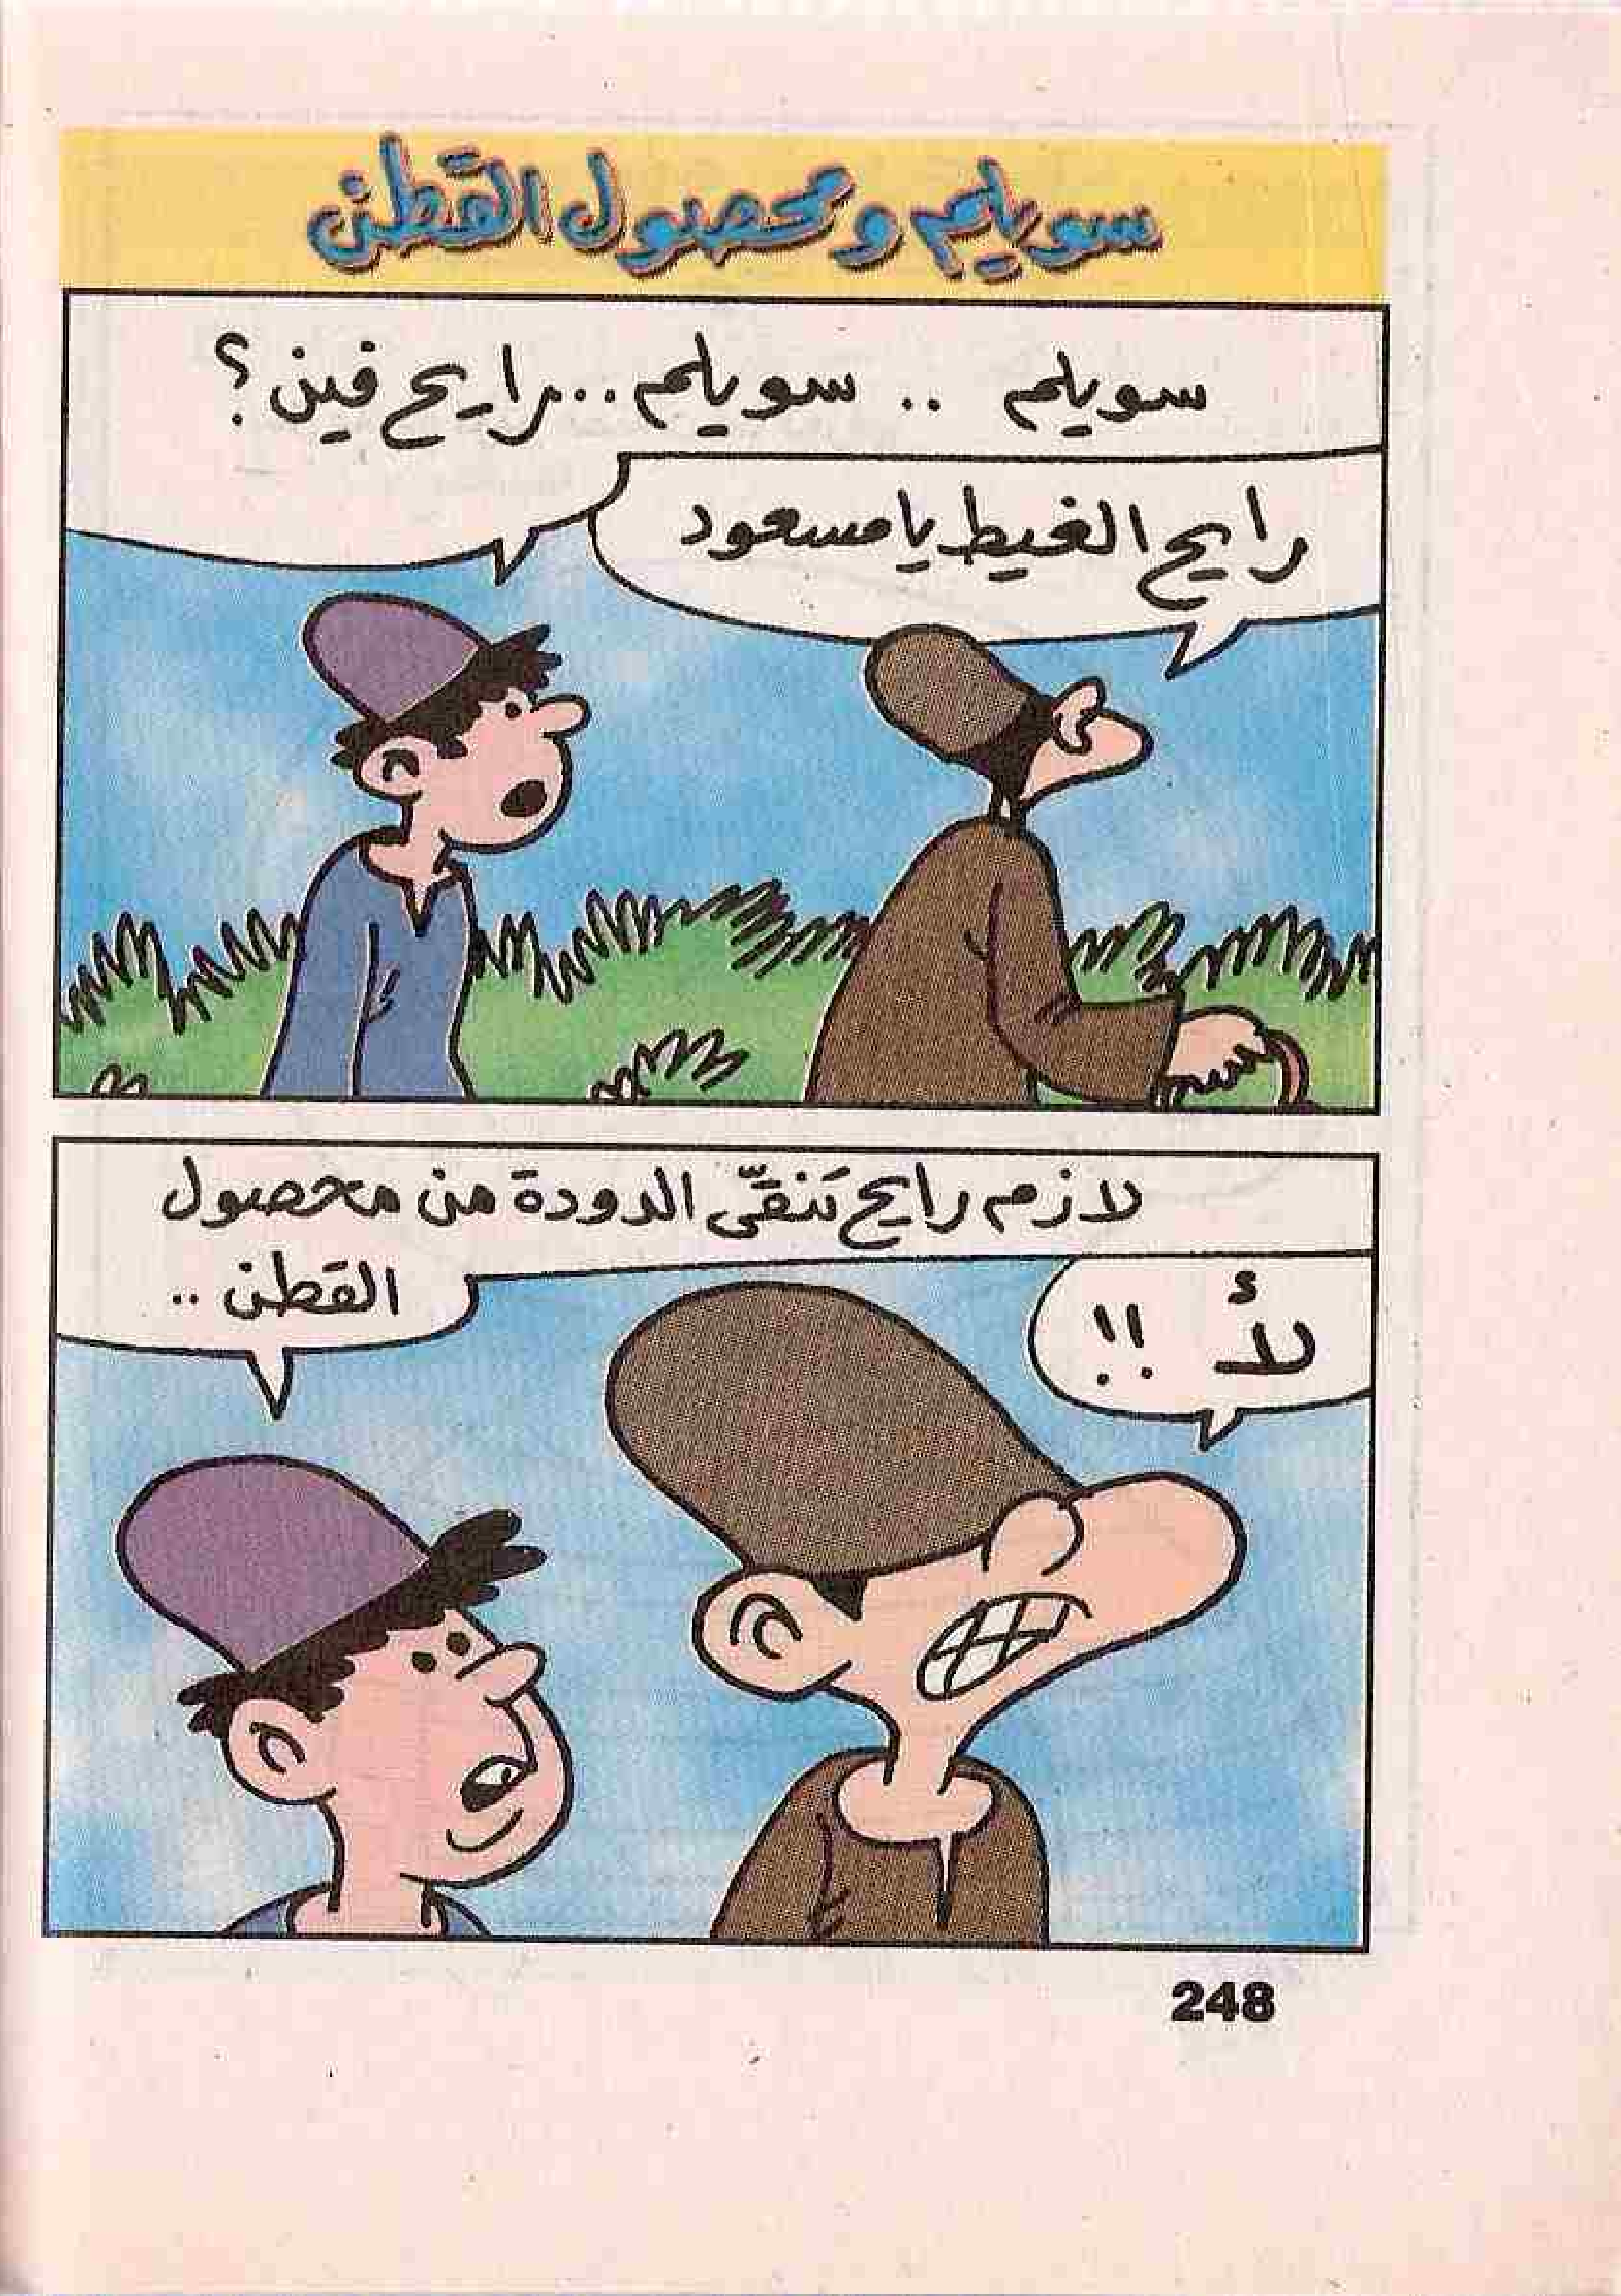 سويلم ومحصول القطن
سويلم .. سويلم... رايح فين؟
رايح الغيط يا مسعود
لازم رايح تنقَّى الدودة من محصول
القطن ..
لأ !!
248